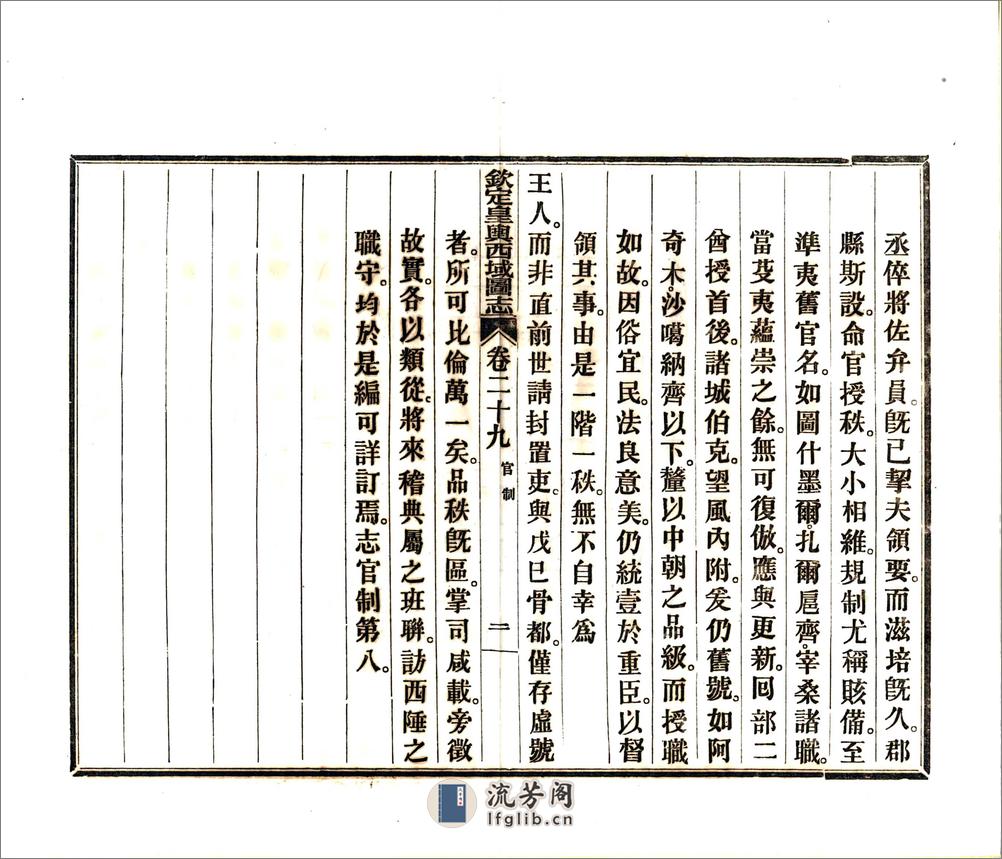 丞倅將佐弁員。旣已挈夫領要。而滋培旣久。郡
縣斯設。命官授秩。大小相維。規制尤稱賅備。至
準夷舊官名。如圖什墨爾。扎爾扈齊。宰桑諸職。
當芟夷蘊崇之餘。無可復倣。應與更新。回部二
酋授首後。諸城伯克。望風內附。爰仍舊號。如阿
奇木。沙噶納齊以下。釐以中朝之品級。而授職
如故。因俗宜民。法良意美。仍統壹於重臣。以督
領其事。由是一階一秩。無不自幸爲
王人。而非直前世請封置吏。與戊巳骨都。僅存虛號
欽定皇輿西域圖志 卷二十九 官制 二
者。所可比倫萬一矣。品秩旣區。掌司咸載。旁徵
故實。各以類從。將來稽典屬之班聯。訪西陲之
職守。均於是編可詳訂焉。志官制第八。
流芳阁
lfglib.cn